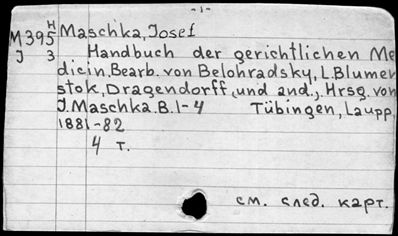 -1-
H
M395 Maschka, Josef
J 3 Handbuch der gerichtlichen Me
dicin, Bearb. von Belohradsky, L. Blumen
stok, Dragendorff, und and., Hrsg. von
J. Maschka. B. 1-4 Tübingen, Laupp,
1881-82
4 т.
см. след. карт.